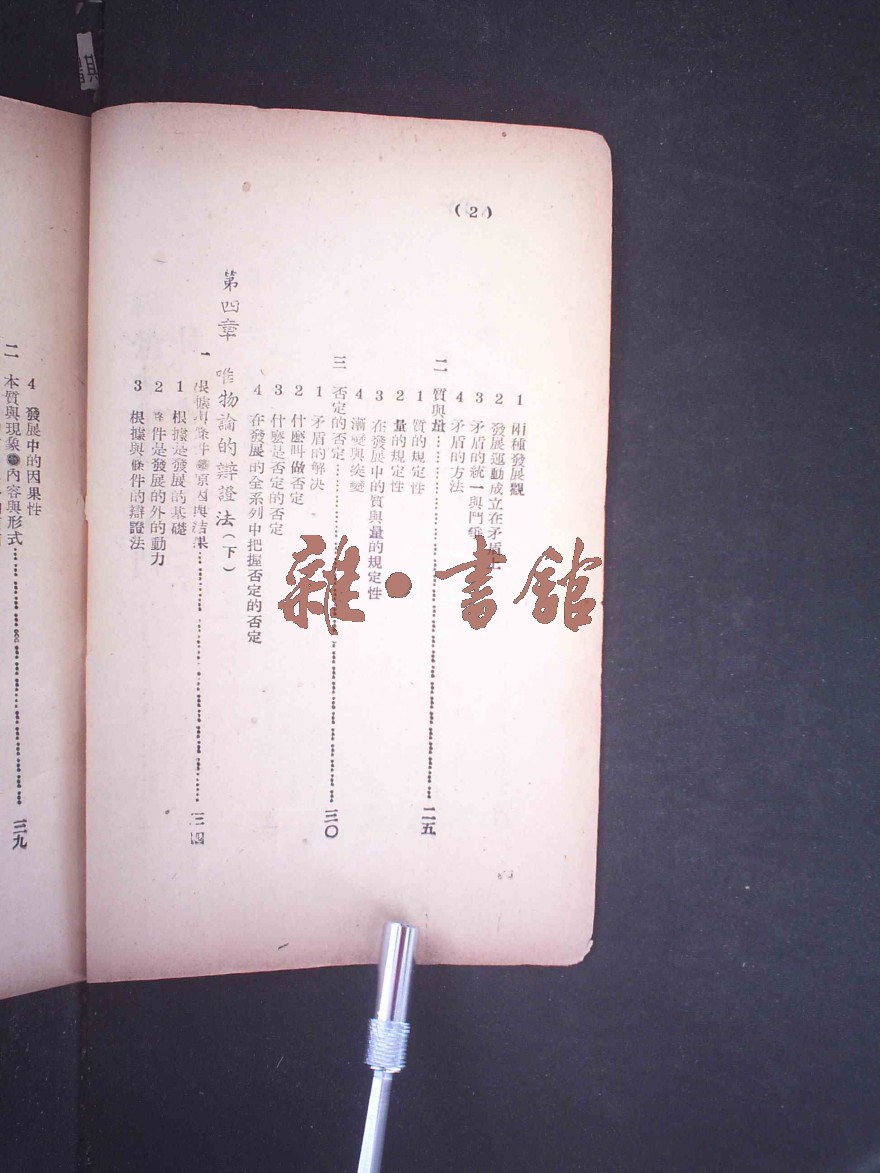 (2)
1 兩種發展觀
2 發展運動成立在矛盾上
3 矛盾的統一與鬥爭
4 矛盾的方法
二 質與量……二五
1 質的規定性
2 量的規定性
3 在發展中的質與量的規定性
4 漸變與突變
三 否定的否定……三〇
1 矛盾的解決
2 什麼叫做否定
3 什麼是否定的否定
4 在發展的全系列中把握否定的否定
第四章 唯物論的辯證法(下)
一 根據與條件●原因與結果……三四
1 根據是發展的基礎
2 條件是發展的外的動力
3 根據與條件的辯證法
4 發展中的因果性
二 本質與現象●內容與形式……三九
雜·書館